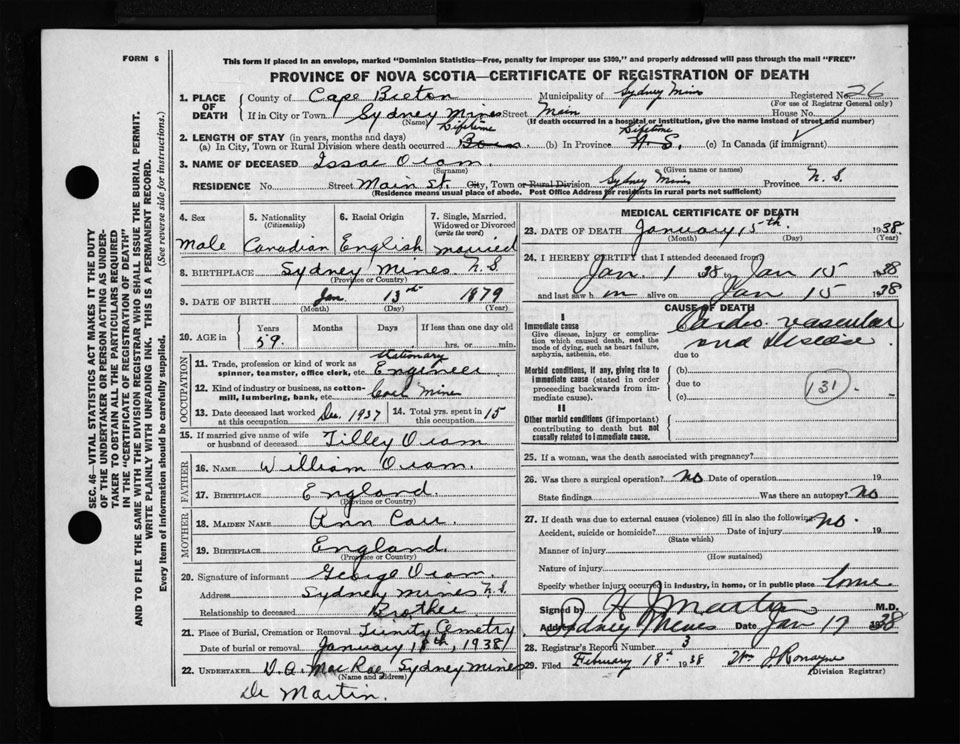 FORM 6
This form if placed in an envelope, marked "Dominion Statistics—Free, penalty for improper use $300," and properly addressed will pass through the mail "FREE"
PROVINCE OF NOVA SCOTIA—CERTIFICATE OF REGISTRATION OF DEATH
SEC. 46—VITAL STATISTICS ACT MAKES IT THE DUTY
OF THE UNDERTAKER OR PERSON ACTING AS UNDER-
TAKER TO OBTAIN ALL THE PARTICULARS REQUIRED
IN THE "CERTIFICATE OF REGISTRATION OF DEATH"
AND TO FILE THE SAME WITH THE DIVISION REGISTRAR WHO SHALL ISSUE THE BURIAL PERMIT.
WRITE PLAINLY WITH UNFADING INK. THIS IS A PERMANENT RECORD.
Every item of information should be carefully supplied. (See reverse side for instructions.)
1. PLACE OF DEATH
County of Cape Breton Municipality of Sydney Mines Registered No. 26
(For use of Registrar General only)
If in City or Town Sydney Mines Street Main House No.
(Name) (If death occurred in a hospital or institution, give the name instead of street and number)
2. LENGTH OF STAY (in years, months and days)
Lifetime Lifetime
(a) In City, Town or Rural Division where death occurred Born (b) In Province N.S. (c) In Canada (if immigrant)
3. NAME OF DECEASED Issac Oram
(Surname) (Given name or names)
RESIDENCE No. Street Main St. City, Town or Rural Division Sydney Mines Province N.S.
(Residence means usual place of abode. Post Office Address for residents in rural parts not sufficient)
4. Sex Male
5. Nationality (Citizenship) Canadian
6. Racial Origin English
7. Single, Married, Widowed or Divorced (write the word) Married
8. BIRTHPLACE Sydney Mines N.S.
(Province or Country)
9. DATE OF BIRTH Jan. 13th 1879
(Month) (Day) (Year)
10. AGE in Years 59 Months Days If less than one day old hrs. or min.
OCCUPATION
11. Trade, profession or kind of work as spinner, teamster, office clerk, etc. Stationary Engineer
12. Kind of industry or business, as cotton-mill, lumbering, bank, etc. Coal Mine
13. Date deceased last worked at this occupation Dec. 1937 14. Total yrs. spent in this occupation 15
15. If married give name of wife or husband of deceased Tilley Oram
FATHER
16. NAME William Oram.
17. BIRTHPLACE England
(Province or Country)
MOTHER
18. MAIDEN NAME Ann Carr.
19. BIRTHPLACE England.
(Province or Country)
20. Signature of informant George Oram.
Address Sydney Mines N.S.
Relationship to deceased Brother
21. Place of Burial, Cremation or Removal Trinity Cemetry
Date of burial or removal January 18th, 1938
22. UNDERTAKER D.A. MacRae Sydney Mines
(Name and address)
Dr Martin.
MEDICAL CERTIFICATE OF DEATH
23. DATE OF DEATH January 15th 1938
(Month) (Day) (Year)
24. I HEREBY CERTIFY that I attended deceased from
Jan. 1 38 Jan 15 1938
and last saw h im alive on Jan 15 1938
CAUSE OF DEATH
I
Immediate cause
Give disease, injury or complication which caused death, not the mode of dying, such as heart failure, asphyxia, asthenia, etc.
Cardio vascular
and Disease
due to
Morbid conditions, if any, giving rise to immediate cause (stated in order proceeding backwards from immediate cause).
(b)
due to
(c)
131
II
Other morbid conditions (if important) contributing to death but not causally related to immediate cause.
25. If a woman, was the death associated with pregnancy?
26. Was there a surgical operation? No Date of operation 19
State findings Was there an autopsy? No
27. If death was due to external causes (violence) fill in also the following No.
Accident, suicide or homicide? Date of injury 19
(State which)
Manner of injury
(How sustained)
Nature of injury
Specify whether injury occurred in industry, in home, or in public place
Signed by H J Martin M.D.
Address Sydney Mines Date Jan 17 1938
28. Registrar's Record Number 3
29. Filed February 18th 1938 Wm J Ronayne
(Division Registrar)